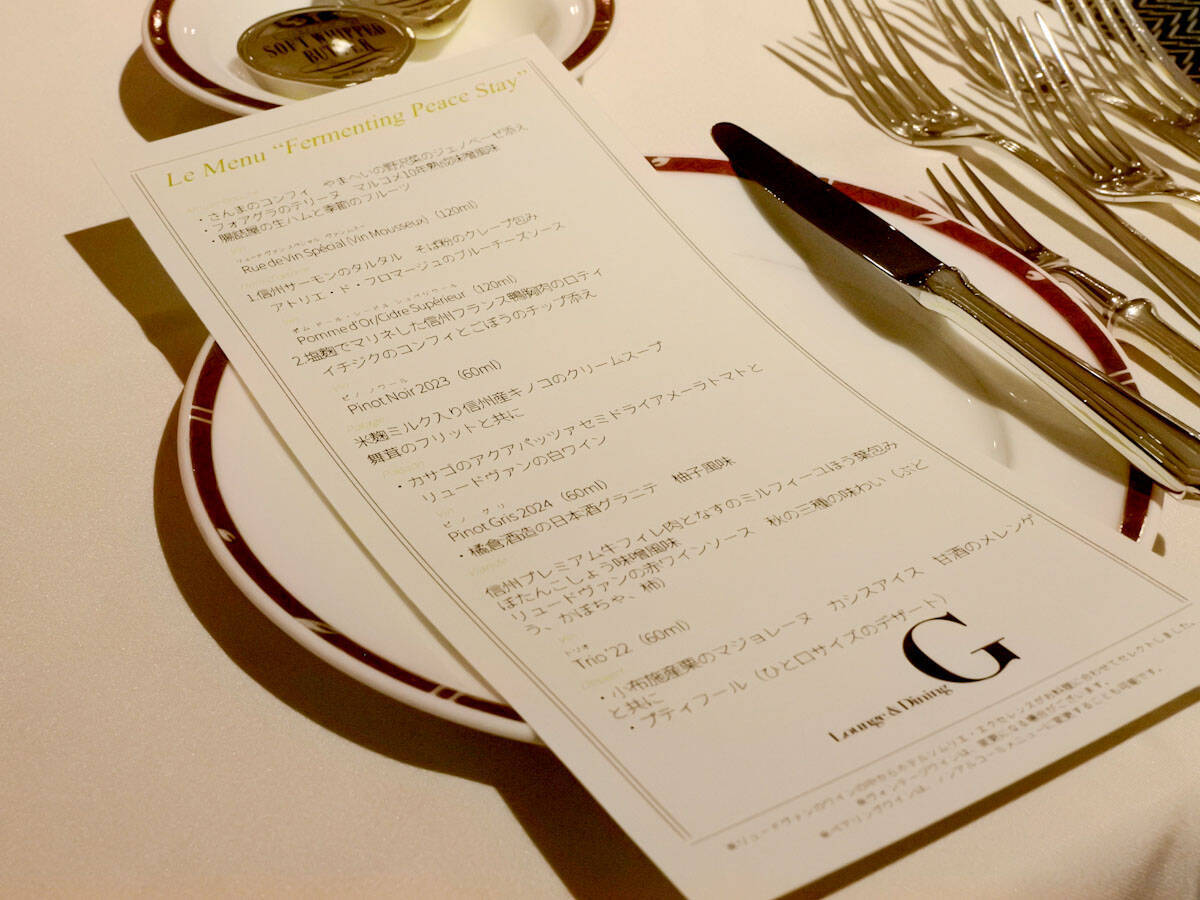 SOFT WHIPPED
BUTTER
Le Menu “Fermenting Peace Stay”
・さんまのコンフィ　やまへいの野沢菜のジェノベーゼ添え
・フォアグラのテリーヌ　マルコメ10年熟成味噌風味
の生ハムと季節のフルーツ
Rue de Vin Spécial (Vin Mousseux)（120ml）
1.信州サーモンのタルタル　そば粉のクレープ包み
アトリエ・ド・フロマージュのブルーチーズソース
Pomme d'Or/Cidre Supérieur（120ml）
2.塩麹でマリネした信州フランス鴨胸肉のロティ
イチジクのコンフィとごぼうのチップ添え
ピノ ノワール
Pinot Noir 2023（60ml）
米麹ミルク入り信州産キノコのクリームスープ
舞茸のフリットと共に
・カサゴのアクアパッツァ セミドライアメーラトマトと
リュードヴァンの白ワイン
ピノ グリ
Pinot Gris 2024（60ml）
・橘倉酒造の日本酒グラニテ　柚子風味
信州プレミアム牛フィレ肉となすのミルフィーユほう葉包み
ぼたんこしょう味噌風味
リュードヴァンの赤ワインソース　秋の三種の味わい（ぶど
う、かぼちゃ、柿）
トリオ
Trio '22（60ml）
・小布施産栗のマジョレーヌ　カシスアイス　甘酒のメレンゲ
と共に
・プティフール（ひと口サイズのデザート）
G
Lounge & Dining
※リュードヴァンのワインの中からホテルソムリエ・エクセレンスがお料理に合わせてセレクトしました。
※ヴィンテージワインは、変更になる場合がございます。
※ペアリングワインは、ノンアルコールメニューに変更することも可能です。